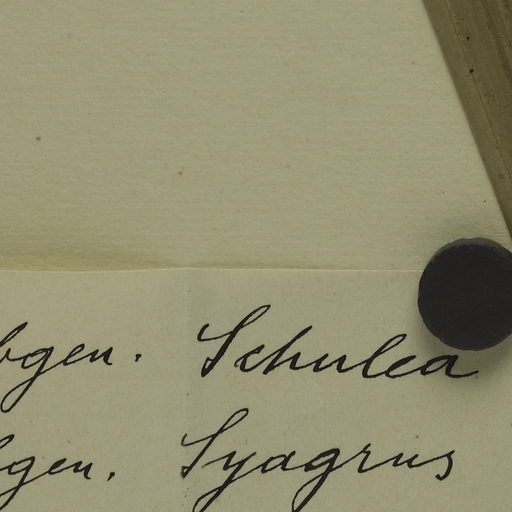 bgen. Schulea
bgen. Syagrus